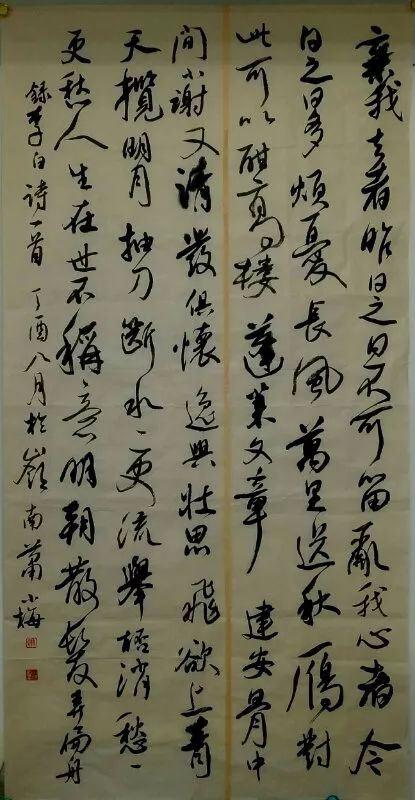 棄我去者昨日之日不可留亂我心者今
日之日多煩憂長風萬里送秋雁對
此可以酣高樓蓬萊文章建安骨中
間小謝又清發俱懷逸興壯思飛欲上青
天攬明月抽刀斷水水更流舉杯消愁愁
更愁人生在世不稱意明朝散髮弄扁舟
錄李白詩一首丁酉八月於嶺南蕭小梅